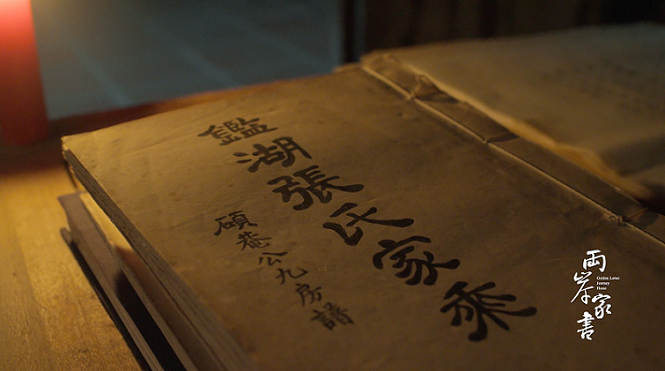 鑑湖張氏家乘
碩菴公九房譜
兩岸家書